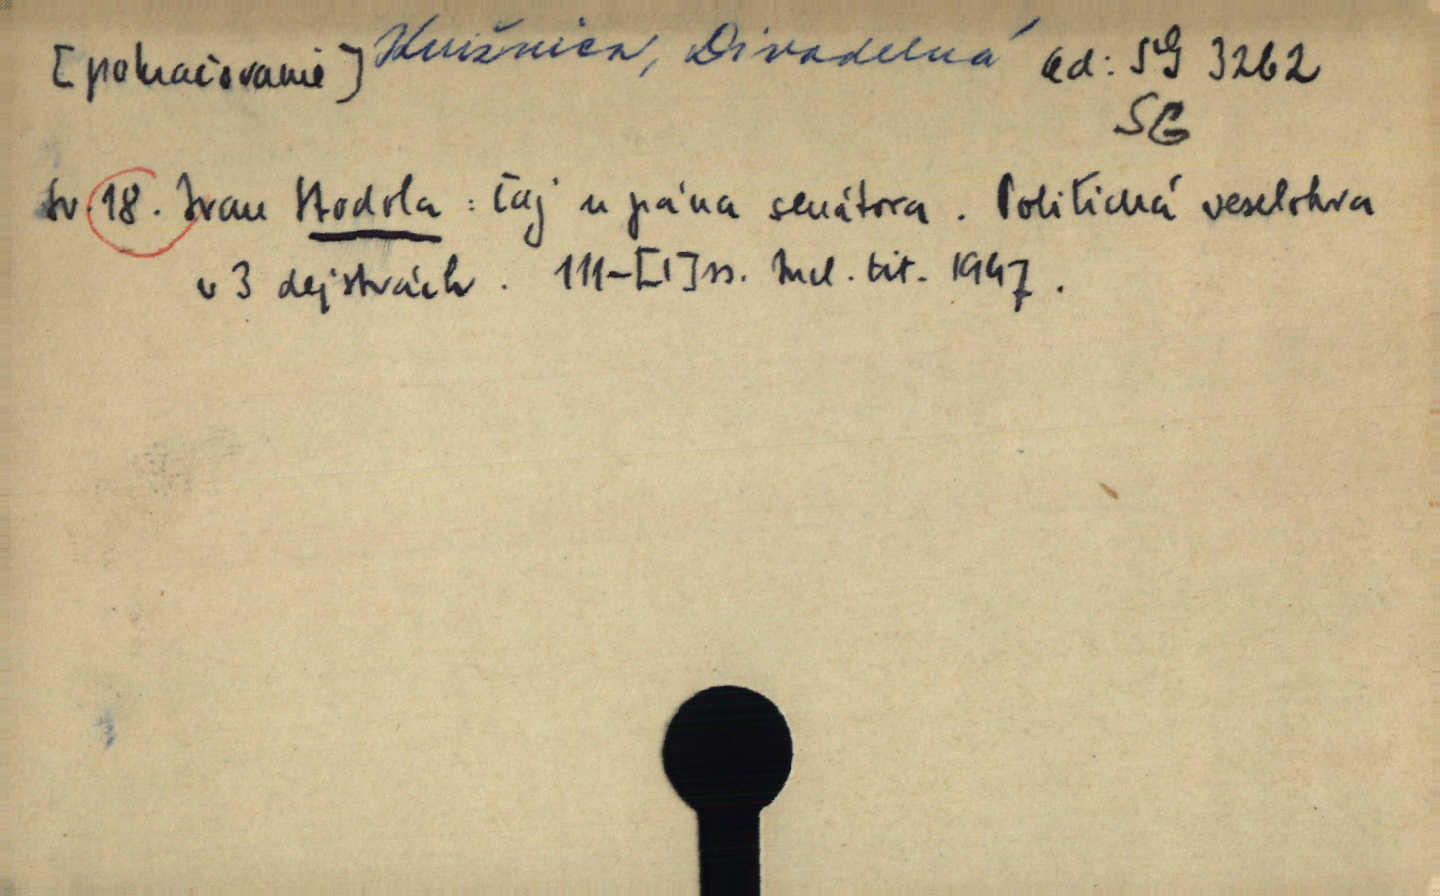 [pokračovanie] Knižnica, Divadelná ad: SG 3262
SG
Sv. 18. Ivan Stodola: Čaj u pána senátora. Politická veselohra
v 3 dejstvách. 111-[1] ss. Incl. tit. 1947.